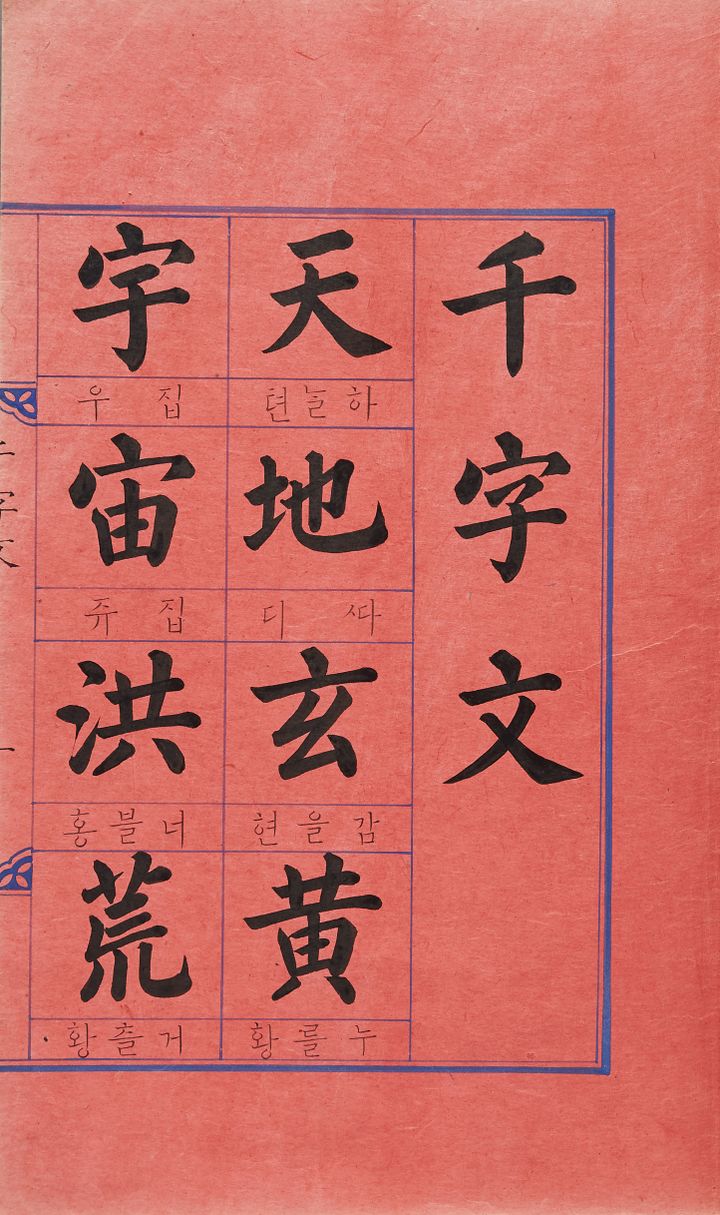 千字文
天
하늘텬
地
ᄯᅡ디
玄
감을현
黄
누를황
宇
집우
宙
집쥬
洪
너블홍
荒
거츨황
千字文
一